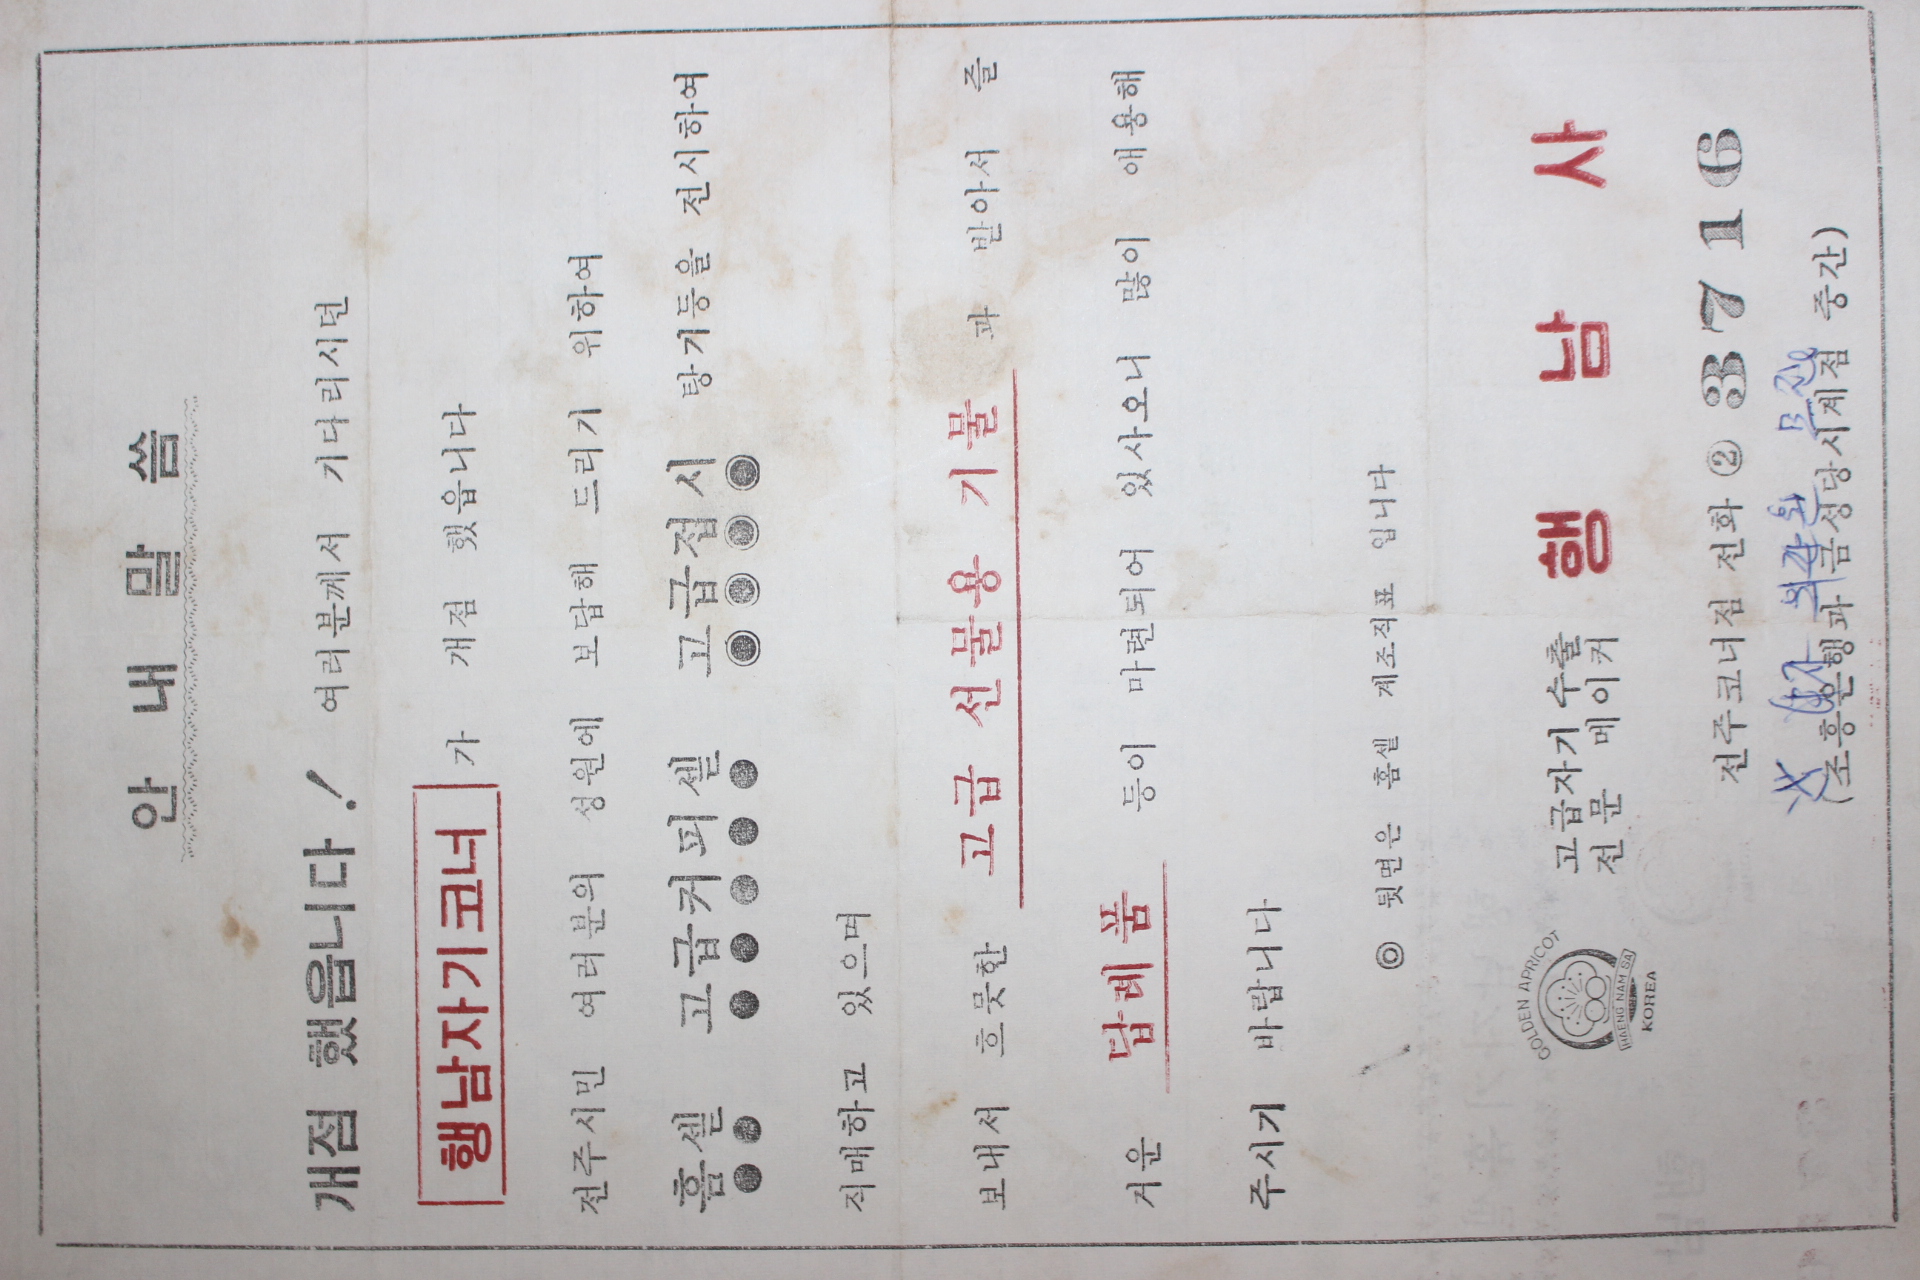 안내말씀
개점 했읍니다! 여러분께서 기다리시던
행남자기코너 가 개점 했읍니다
전주시민 여러분의 성원에 보답해 드리기 위하여
홈셀 고급커피셀 고급접시 탕기등을 전시하여
직매하고 있으며
보내서 흐뭇한 고급 선물용 기물 과 받아서 즐
거운 답례품 등이 마련되어 있사오니 많이 애용해
주시기 바랍니다
◎ 뒷면은 홈셀 제조직표 입니다
GOLDEN APRICOT
HAENG NAM SA
KOREA
고급자기 수출
전문 메이커
행남사
전주코너점 전화 ② 3716
(조흥은행과 금성당시계점 중간)